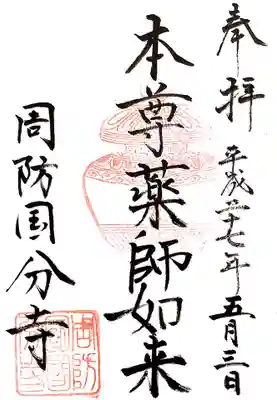 奉拝
平成二十七年五月三日
本尊薬師如来
周防国分寺